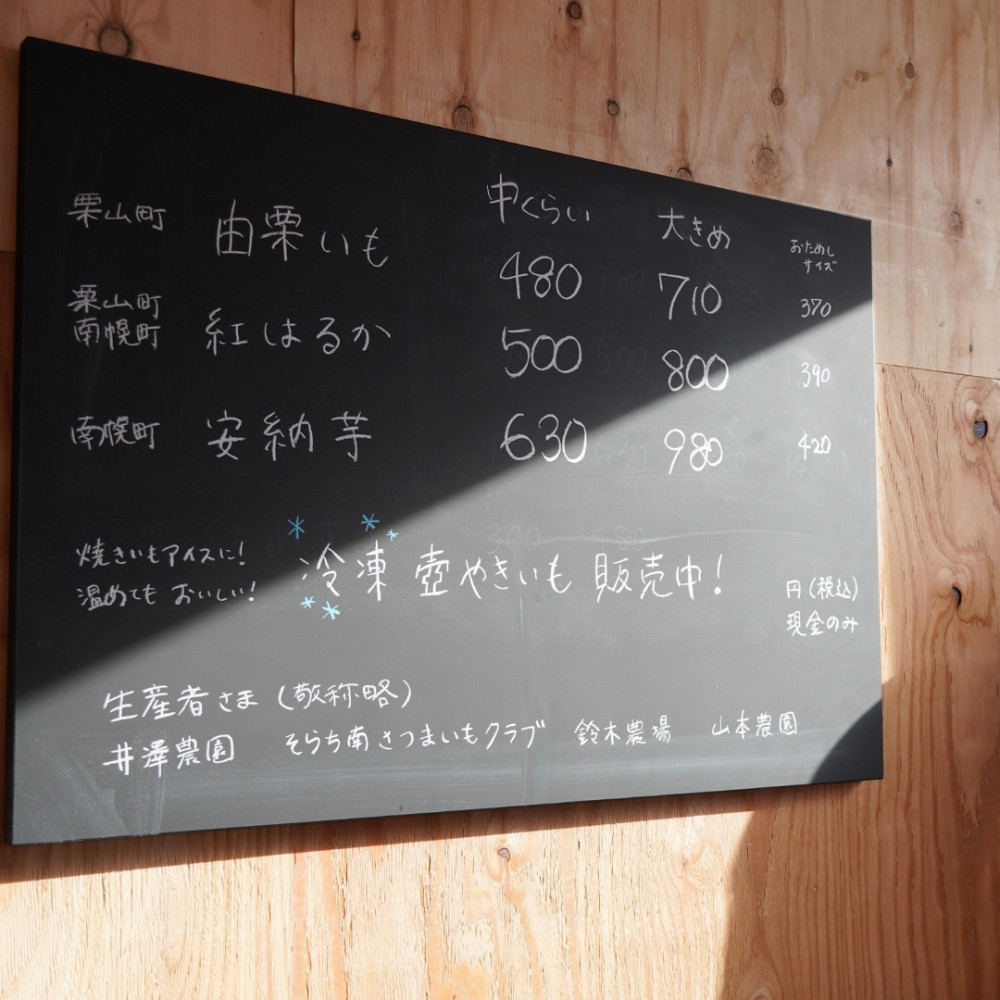 中くらい 大きめ おためしサイズ
栗山町 由栗いも 480 710 370
栗山町 南幌町 紅はるか 500 800 390
南幌町 安納芋 630 980 420
焼きいもアイスに!
温めても おいしい!
冷凍 壺やきいも 販売中!
円(税込)
現金のみ
生産者さま(敬称略)
井澤農園 そらち南さつまいもクラブ 鈴木農場 山本農園